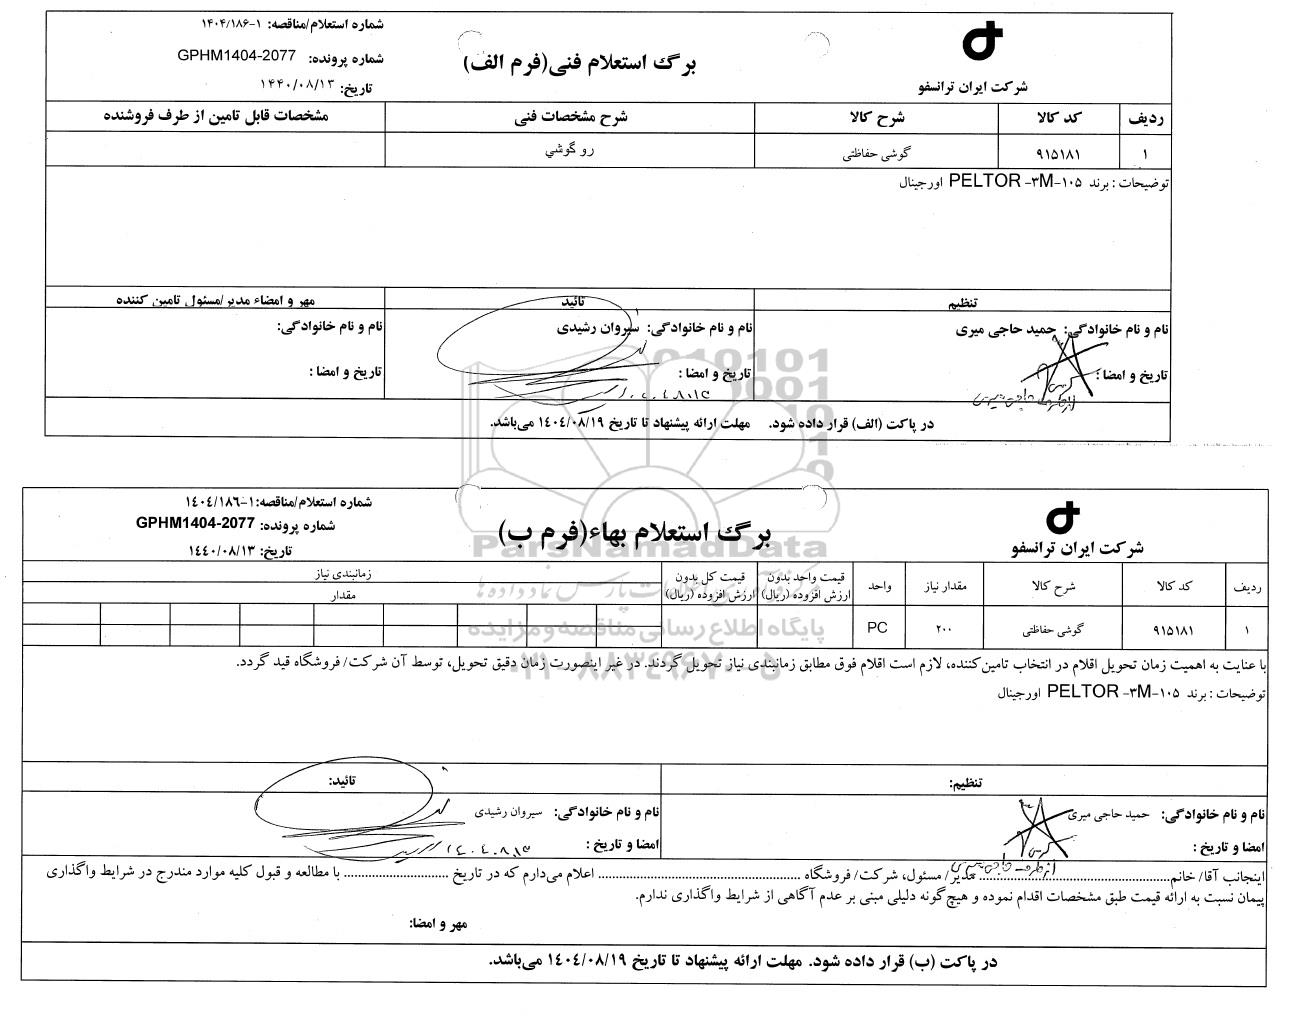 شماره استعلام/مناقصه: ۱-۱۴۰۴/۱۸۶
شماره پرونده: GPHM1404-2077
تاریخ: ۱۴۴۰/۰۸/۱۳
برگ استعلام فنی(فرم الف)
شرکت ایران ترانسفو
ردیف کد کالا شرح کالا شرح مشخصات فنی مشخصات قابل تامین از طرف فروشنده
۱ ۹۱۵۱۸۱ گوشی حفاظتی رو گوشي
توضیحات : برند PELTOR -۳M-۱۰۵ اورجینال
تنظیم تائید مهر و امضاء مدیر/مسئول تامین کننده
نام و نام خانوادگی: حمید حاجی میری نام و نام خانوادگی: سیروان رشیدی نام و نام خانوادگی:
تاریخ و امضا : تاریخ و امضا : تاریخ و امضا :
در پاکت (الف) قرار داده شود. مهلت ارائه پیشنهاد تا تاریخ ۱۴۰۴/۰۸/۱۹ می‌باشد.
شماره استعلام/مناقصه:۱-۱۴۰۴/۱۸۶
شماره پرونده: GPHM1404-2077
تاریخ: ۱۴۴۰/۰۸/۱۳
برگ استعلام بهاء(فرم ب)
شرکت ایران ترانسفو
ParsNamadData
ردیف کد کالا شرح کالا مقدار نیاز واحد قیمت واحد بدون ارزش افزوده (ریال) قیمت کل بدون ارزش افزوده (ریال) زمانبندی نیاز
مقدار
۱ ۹۱۵۱۸۱ گوشی حفاظتی ۲۰۰ PC
پایگاه اطلاع رسانی مناقصه و مزایده
۰۲۱-۸۸۳۴۹۶۷۰-۵
با عنایت به اهمیت زمان تحویل اقلام در انتخاب تامین‌کننده، لازم است اقلام فوق مطابق زمانبندی نیاز تحویل گردند. در غیر اینصورت زمان دقیق تحویل، توسط آن شرکت/ فروشگاه قید گردد.
توضیحات : برند PELTOR -۳M-۱۰۵ اورجینال
تنظیم: تائید:
نام و نام خانوادگی: حمید حاجی میری نام و نام خانوادگی: سیروان رشیدی
امضا و تاریخ : امضا و تاریخ :
اینجانب آقا/ خانم.................... مدیر/ مسئول، شرکت/ فروشگاه .................... اعلام می‌دارم که در تاریخ .................... با مطالعه و قبول کلیه موارد مندرج در شرایط واگذاری
پیمان نسبت به ارائه قیمت طبق مشخصات اقدام نموده و هیچ‌گونه دلیلی مبنی بر عدم آگاهی از شرایط واگذاری ندارم.
مهر و امضا:
در پاکت (ب) قرار داده شود. مهلت ارائه پیشنهاد تا تاریخ ۱۴۰۴/۰۸/۱۹ می‌باشد.